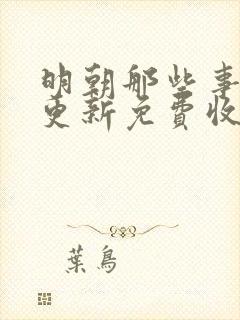 明朝那些事
更新免费收
葉鳥